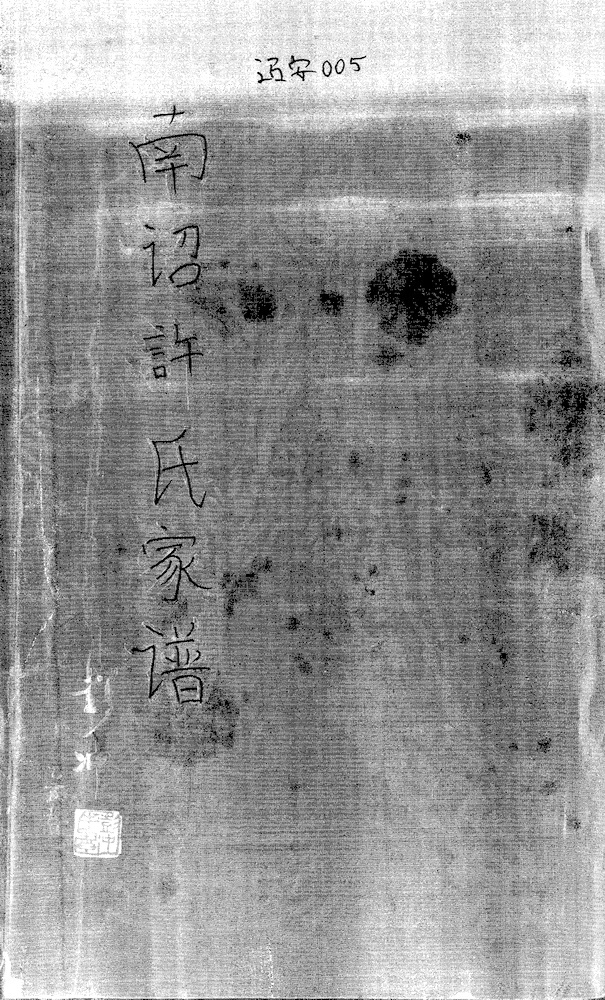 诏安005
南诏許氏家谱